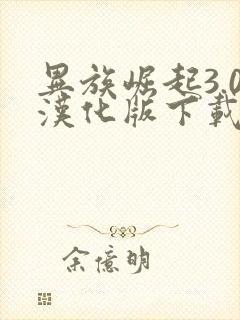 異族崛起3.0
漢化版下載
余億明